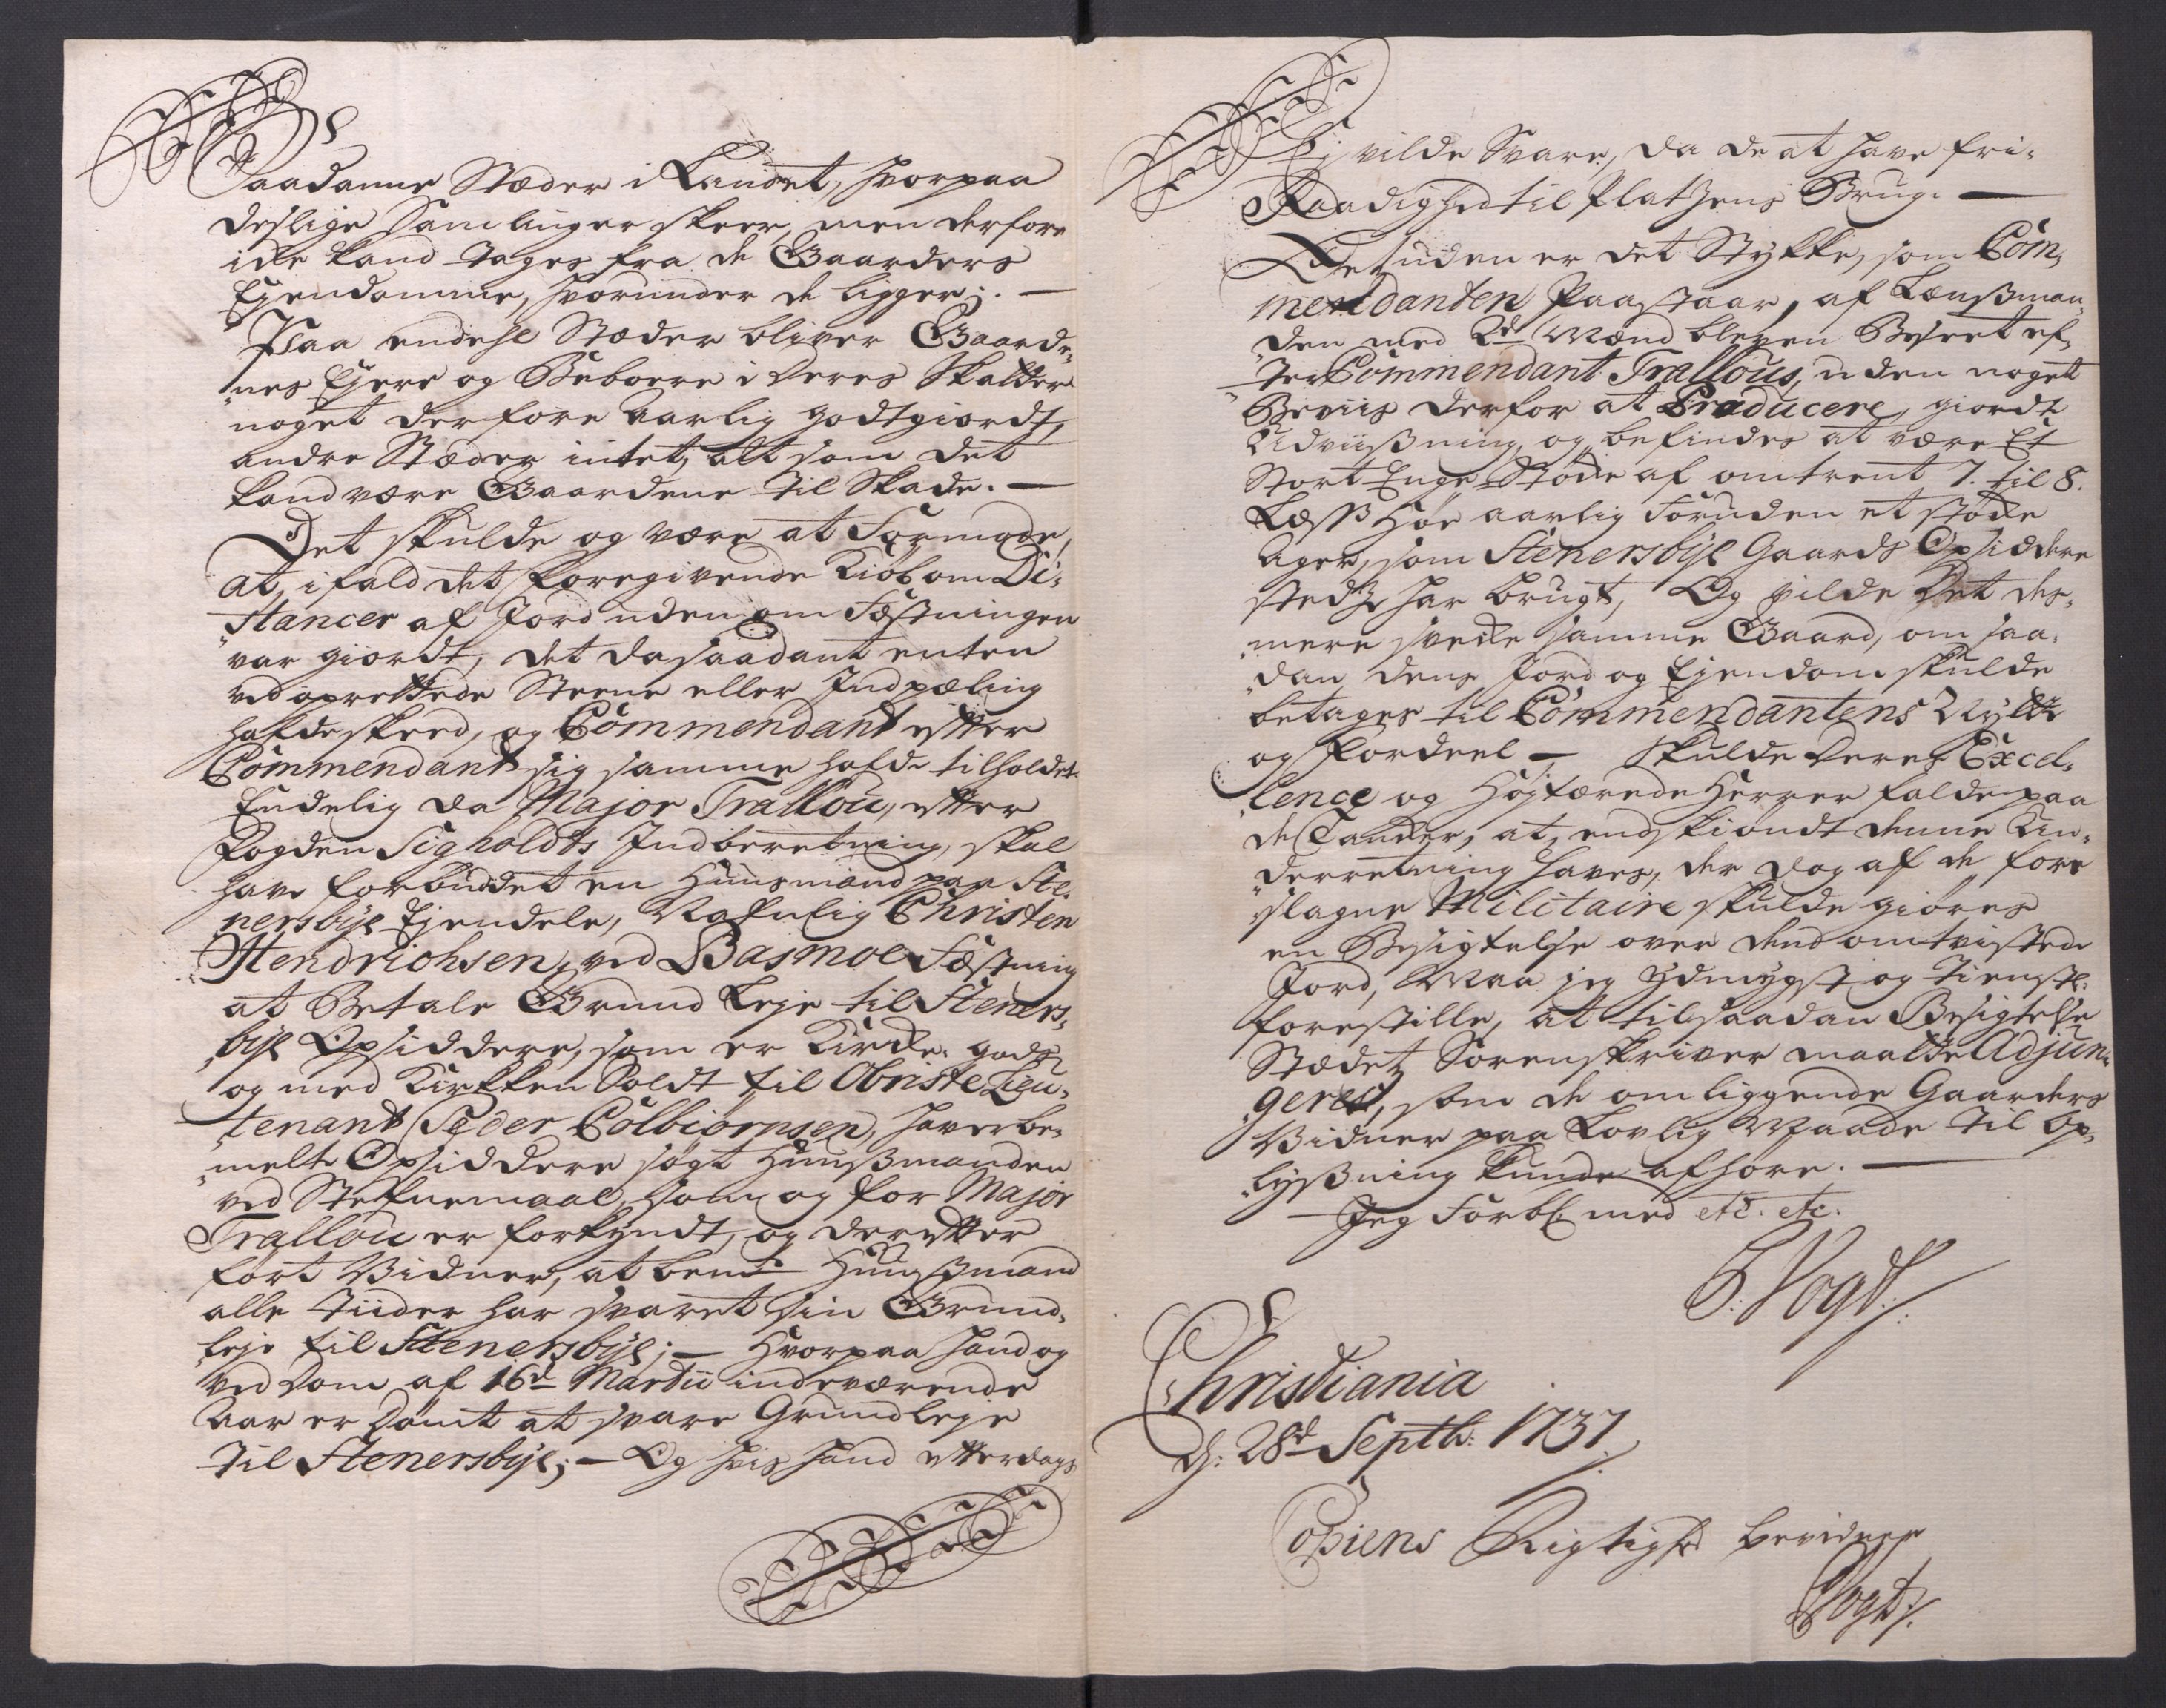 Saadanne Stæder i Landet, hvorpaa
deslige Samlinger skeer, men derfore
icke kand tages fra de Gaarders
Ejendomme, hvorunder de ligger;. —
Paa endehl Stæder bliver Gaarde„
„nes Ejere og Beboere i deres Skatter
noget derfore Aarlig godtgiordt,
andre Stæder intet, alt som det
kand være Gaardene til Skade. —
Det skulde og være at Formode,
at, ifald det foregivende Kiöb om Di„
„stancer af Jord uden om Fæstningen
var giordt, det da saadant enten
ved oprettede Steene eller Indpæling
hafde skeed, og Commendant efter
Commendant sig samme hafde tilholdet.
Endelig da Major Trallou, efter
Fogden Sigholdts Indberetning, skal
have forbudet en Huusmand paa Ste„
„nersbye Ejendele, Nafnlig Christen
Hendrichsen, ved Basmoe Fæstning
at Betale Grund Leje til Steners„
„bye Opsiddere, som er Kircke-gods
og med Kirkken Soldt til Obriste Lieu„
„tenant Peder Colbiörnsen, haver be„
„melte Opsiddere sögt Huusmanden
ved Stefnemaal, som og for Major
Trallou er forkyndt, og derefter
fört Vidner, at bemte Huusmand
alle tiider har svaret sin Grund„
„leje til Stenersbye; — Hvorpaa hand og
ved Dom af 16d Martii indeværende
Aar er dömt at svare Grundleje
til Stenersbye; — Og hvis hand efterdags
Ej vilde Svare, da de at have fri„
Raadighed til Platzens Brug. —
Desuden er det Stykke, som Com„
mendanten Paastaar, af Lensman„
„den med 2de Mænd bleven Beseet ef„
„ter Commendant Trallous, uden noget
Beviis derfor at Producere, giordte
Udviisning, og befindes at være Et
Stort Enge-Støcke af omtrent 7. til 8.
Læss Höe aarlig foruden et støcke
Ager, som Stenersbye Gaards Opsiddere
stedse har brugt, Og vilde Det des„
„mere svecke samme Gaard, om saa„
„dan dens Jord og Ejendom skulde
betages til Commendantens Nytte
og Fordeel — Skulde Deres Excel„
„lence og Höjtærede Herrer falde paa
de Tancker, at, endskiöndt denne Un„
„derretning haves, der dog af de fore
„slagne Militaire skulde giöres
en Besigtelse over dend omtvistede
Jord, Maa jeg ydmygst og tienstl:
forestille, at til saadan Besigtelse
Stædets Sorenskriver maatte Adjun„
„geres, som de omliggende Gaarders
Vidner paa Lovlig Maade til Op„
„lysning kunde afhöre. —
Jeg Forbl: med etc. etc.
J: Vogt/:
Christiania
d: 28d Septbr: 1737
Copiens Rigtighed bevidner
JVogt/.